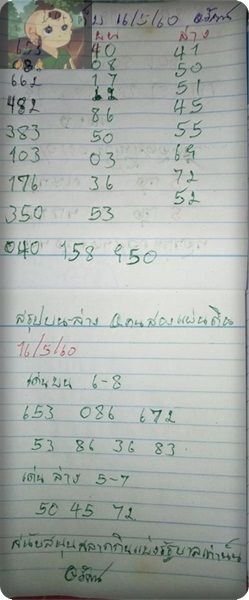 16/5/60
บน ล่าง
40 41
08 50
662 17 51
482 86 45
383 50 55
103 03
176 36 72
350 53 52
040 158 950
สรุปบน-ล่าง คนสองแผ่นดิน
16/5/60
เด่นบน 6-8
653 086 672
53 86 36 83
เด่น ล่าง 5-7
50 45 72
สนับสนุนสลากกินแบ่งรัฐบาลเท่านั้น